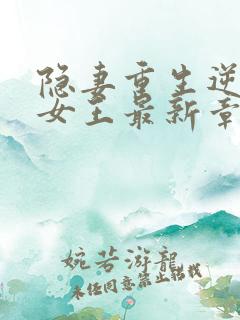 隐妻重生逆
女王最新章
婉若游龙
未经同意禁止转载